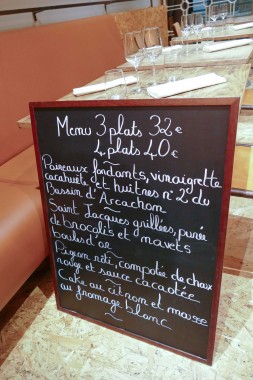 Menu 3 plats 32€
4 plats 40€
Poireaux fondants, vinaigrette
cacahuète et huîtres n°2 du
Bassin d'Arcachon
~
Saint Jacques grillées, purée
de brocolis et navets
boules d'or
~
Pigeon rôti, compotée de choux
rouge et sauce cacaotée
~
Cake au citron et mousse
au fromage blanc
~